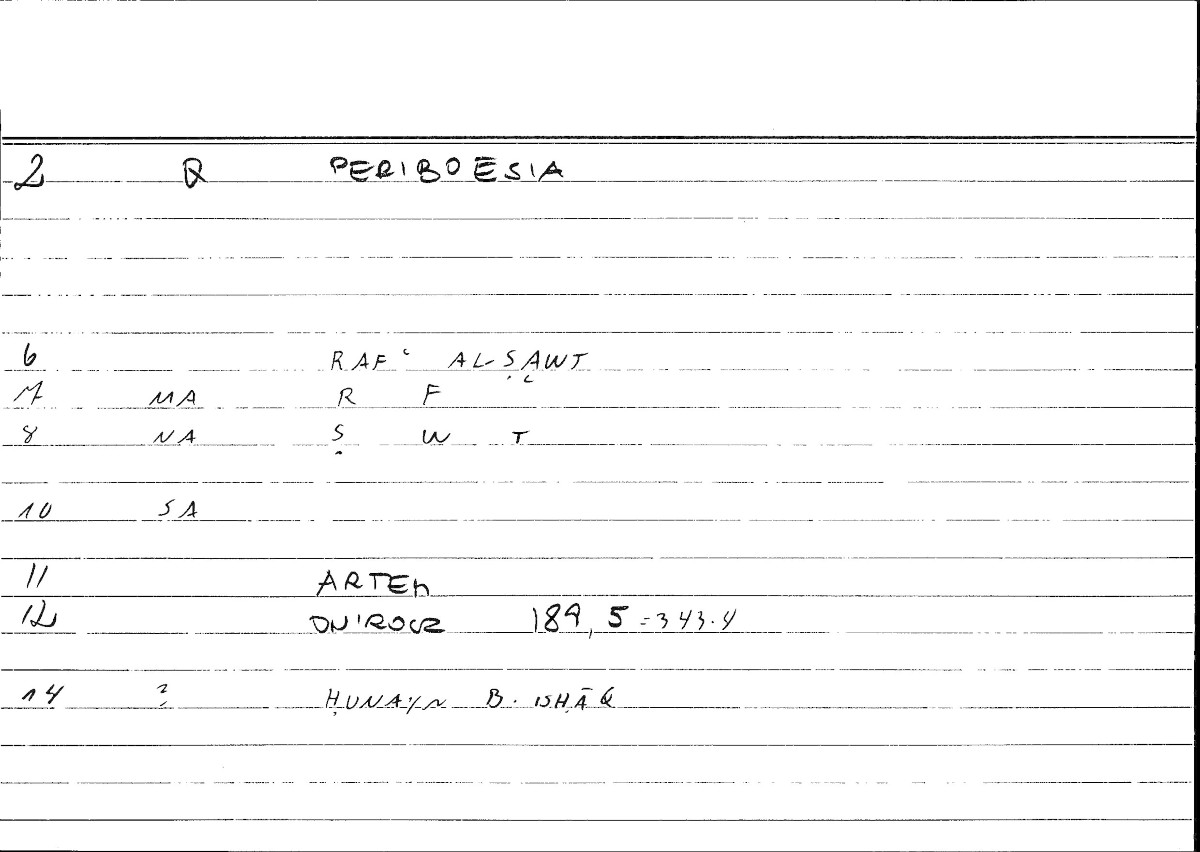 2 Q PERIBOESIA
6 RAFʿ AL-ṢAWT
7 MA R F
8 NA Ṣ W T
10 SA
11 ARTEM
12 ONIROCR 189, 5 = 343.4
14 ? ḤUNAYN B. ISḤĀQ